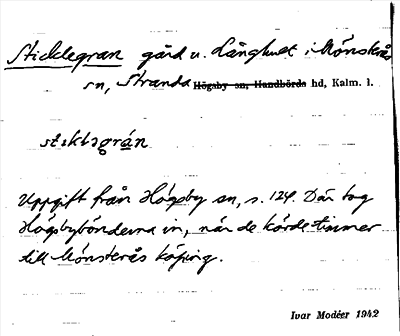 Sticklegran gård u. Långhult i Mönsterås
sn, Stranda Högsby sn, Handbörds hd, Kalm. l.
stiklagrán
Uppgift från Högsby sn, s. 124. Där tog
Högsbybönderna in, när de körde timmer
till Mönsterås köping.
Ivar Modéer 1942